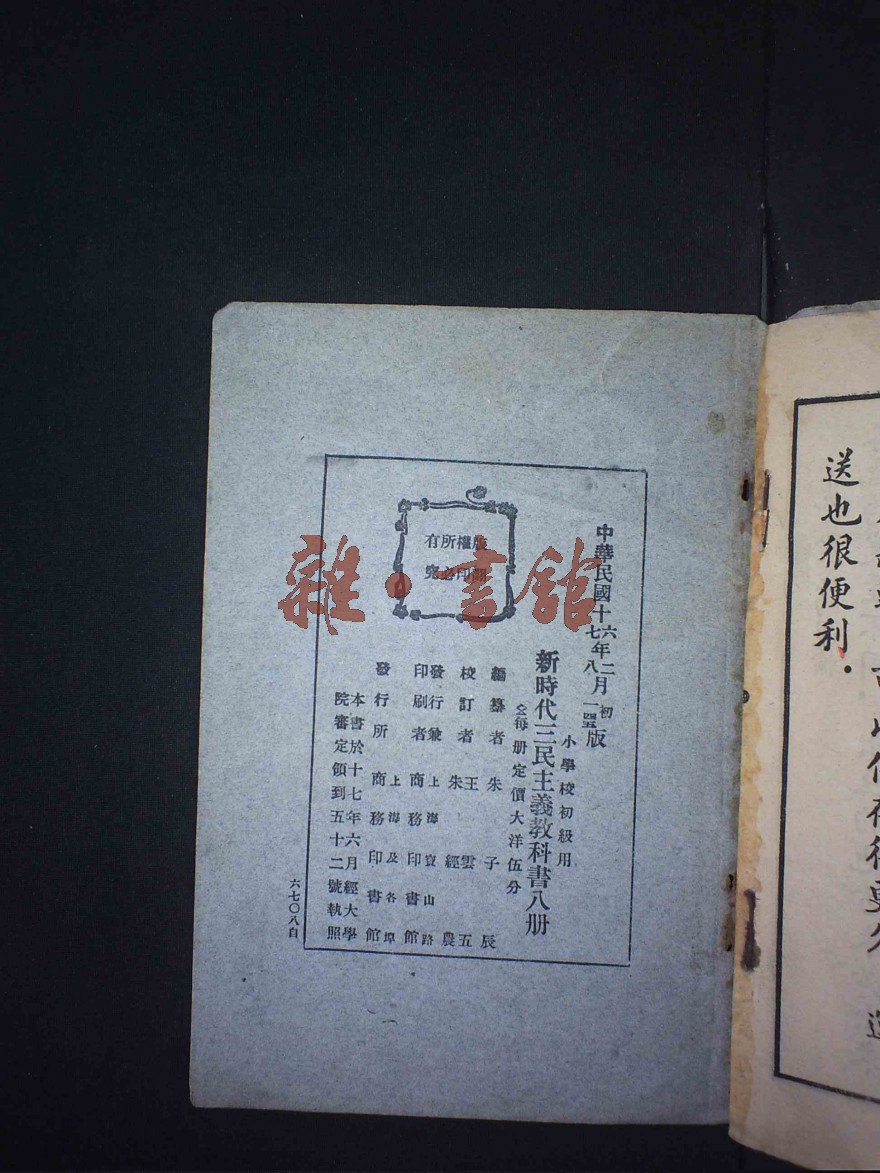 送也很便利．
中華民國十六年二月初版
十七年八月一四五版
小學校初級用
新時代三民主義教科書八册
每册定價大洋伍分
編纂者 朱子辰
校訂者 王雲五 朱經農
發行兼印刷者 上海寶山路 商務印書館
發行所 上海及各埠 商務印書館
本書於十七年六月經大學
院審定領到五十二號執照
六七〇八自
版權所有
翻印必究
雜·書館